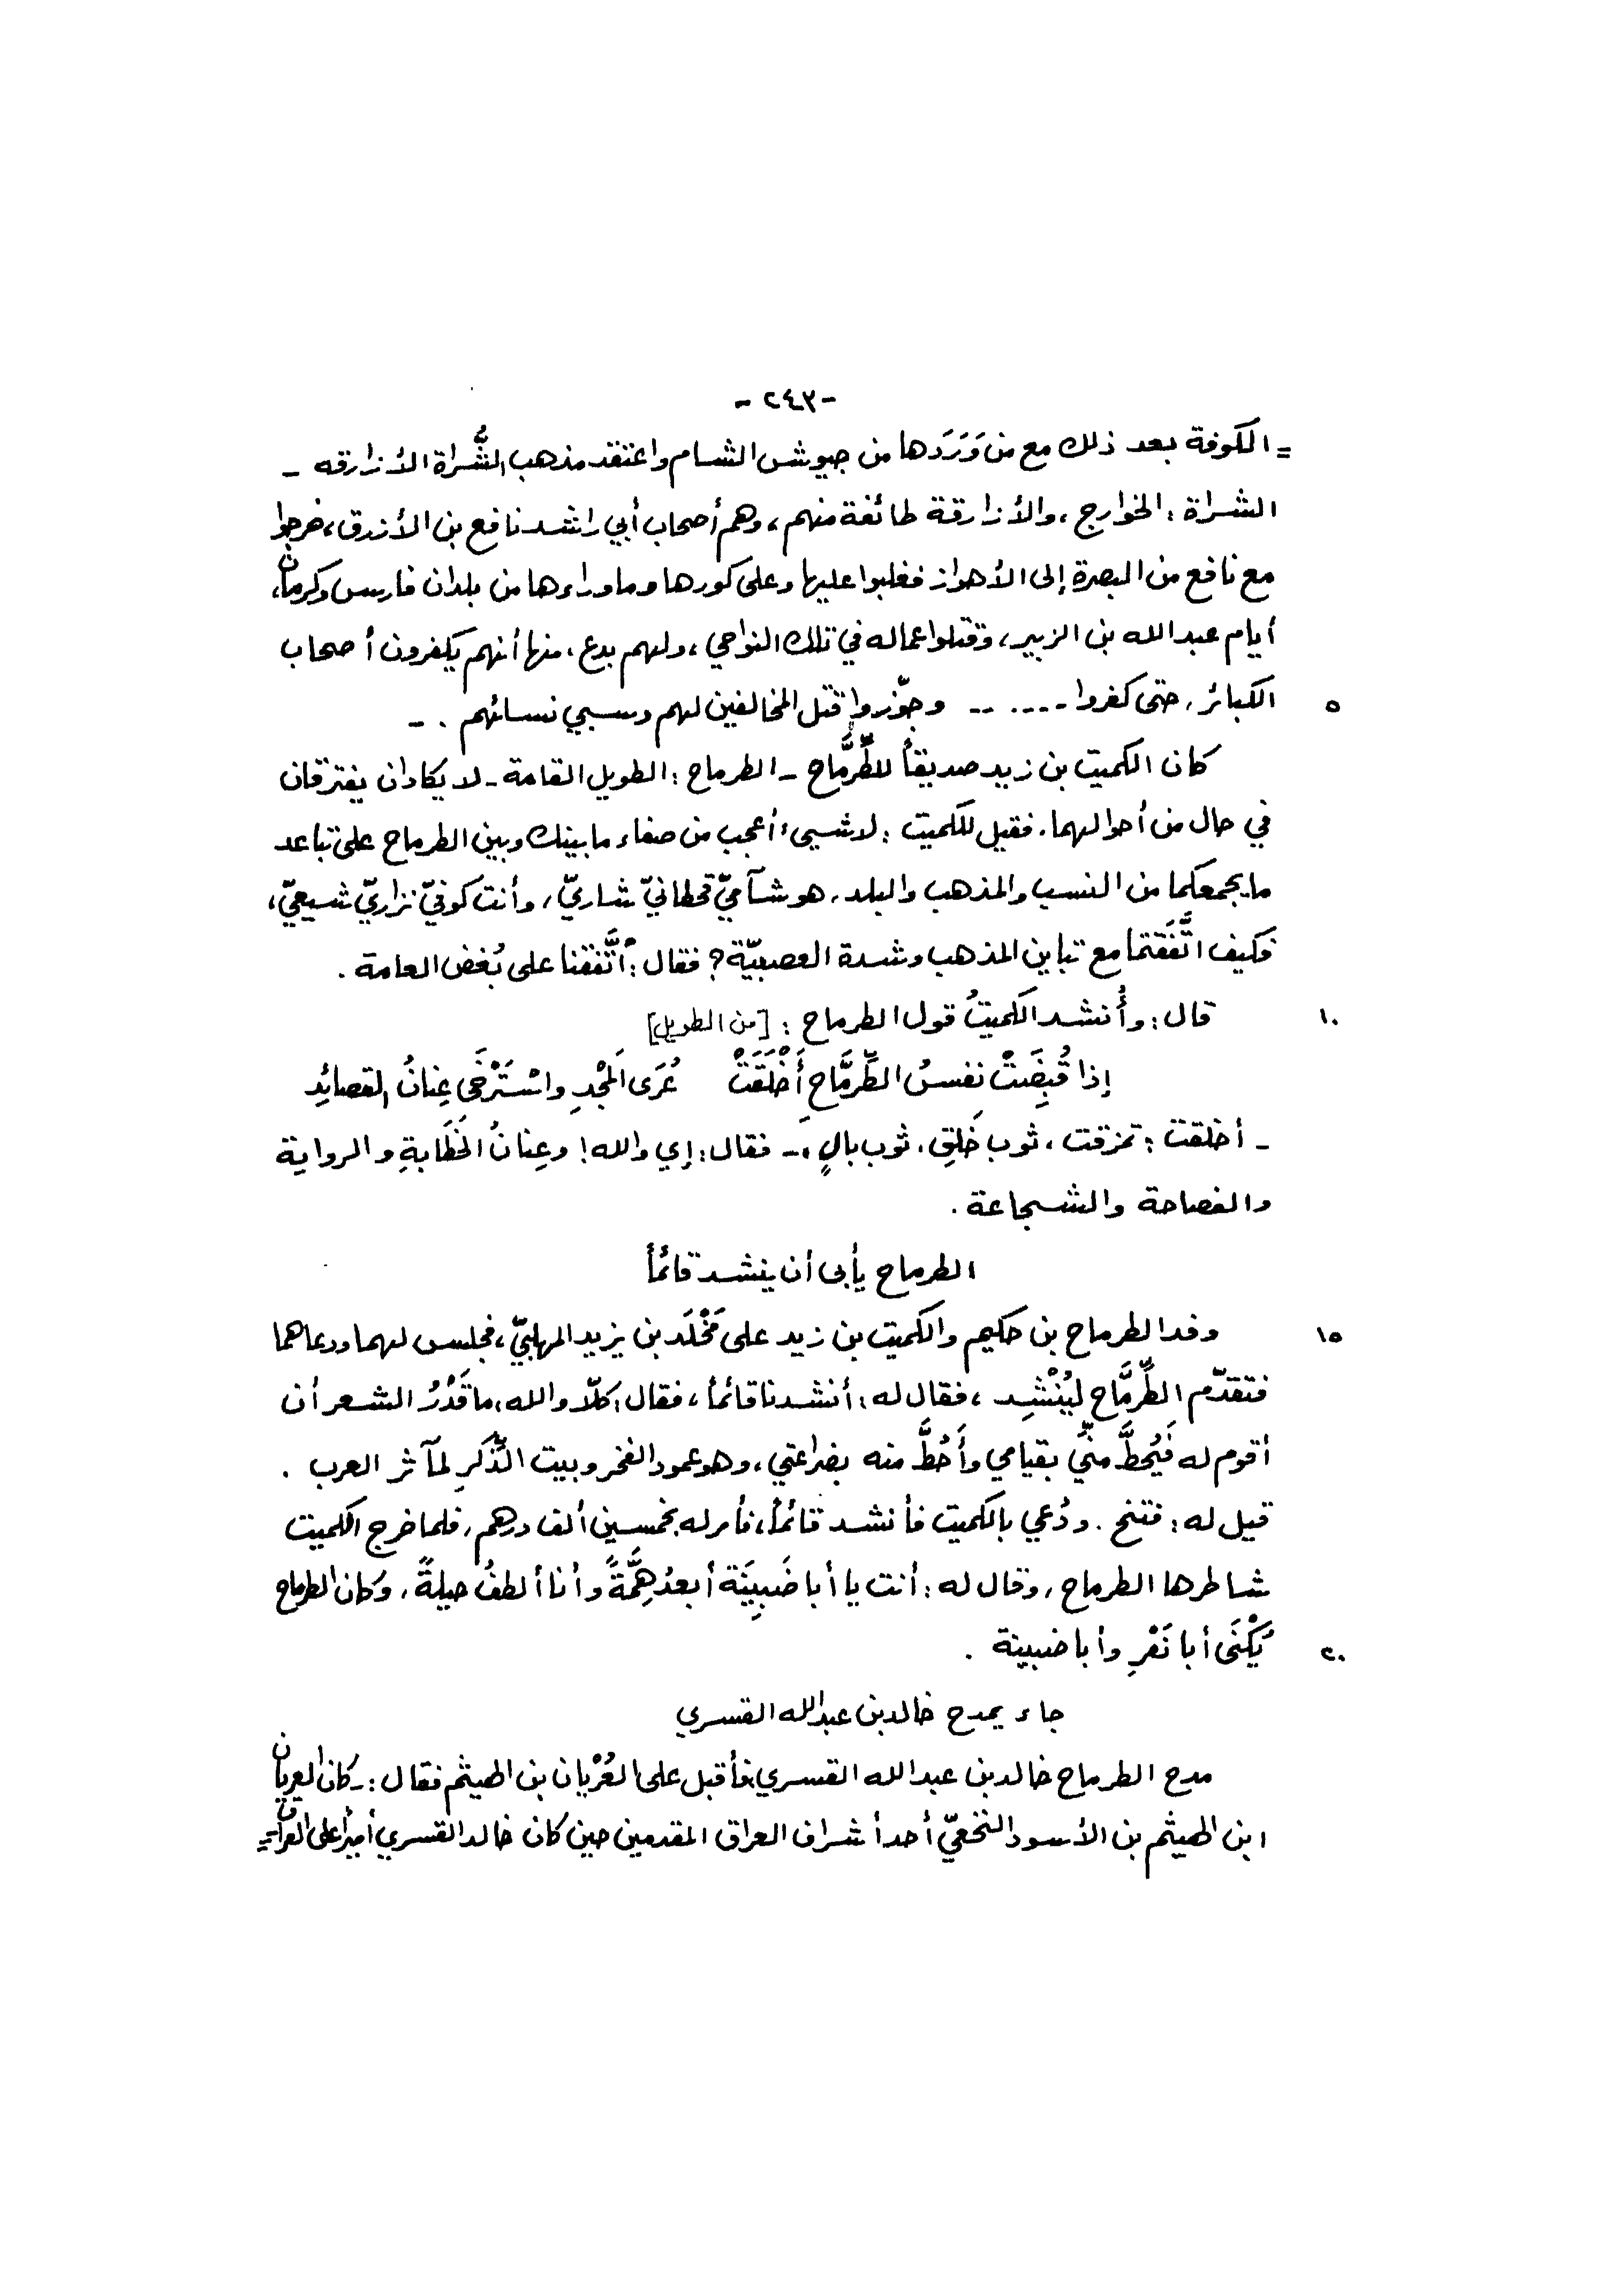 -٢٤٣-
= الكوفة بعد ذلك مع من وَرَدَها من جيوش الشام واعتقد مذهب الشُّراة الأزارقه -
الشراة : الخوارج ، والأزارقة طائفة منهم ، وهم أصحاب أبي راشد نافع بن الأزرق ، خرجوا
مع نافع من البصرة إلى الأهواز فغلبوا عليها وعلى كورها وما وراءها من بلدان فارس وكرمان ،
أيام عبد الله بن الزبير ، وقتلوا عماله في تلك النواحي ، ولهم بدع ، منها أنهم يكفرون أصحاب
٥ الكبائر ، حتى كفروا ------ وجوّزوا قتل المخالفين لهم وسبي نسائهم . -
كان الكميت بن زيد صديقاً للطِّرِمَّاح - الطرماح : الطويل القامة - لا يكادان يفترقان
في حال من أحوالهما . فقيل للكميت : لا شيىء أعجب من صفاء ما بينك وبين الطرماح على تباعد
ما يجمعكما من النسب والمذهب والبلد ، هو شآميّ قحطانيّ شاريّ ، وأنت كوفيّ نزاريّ شيعيّ ،
فكيف اتَّفَقتما مع تباين المذهب وشدة العصبيّة ؟ فقال : اتَّفقنا على بُغض العامة .
١٠ قال : وأُنشد الكميتُ قول الطرماح : [من الطويل]
إذا قُبِضَتْ نفسُ الطِّرِمَّاحِ أَخْلَقَتْ عُرَى المَجْدِ واسْتَرْخَى عِنانُ القصائدِ
- أخلقت : تمزقت ، ثوب خَلِق ، ثوب بالٍ ،- فقال : إي والله ! وعِنانُ الخَطَابةِ والرواية
والفصاحة والشجاعة .
الطرماح يأبى أن ينشد قائماً
١٥ وفد الطرماح بن حكيم والكميت بن زيد على مَخْلَد بن يزيد المهلبيّ ، فجلس لهما ودعاهما
فتقدّم الطِّرِمَّاح ليُنْشِد ، فقال له : أنشدنا قائماً ، فقال : كلّا والله ، ما قَدْرُ الشعر أن
أقوم له فَيُحطَّ منِّي بقيامي وأَحُطَّ منه بضراعتي ، وهو عمود الفخر وبيت الذِّكرِ لمآثر العرب .
قيل له : فتنح . ودُعي بالكميت فأنشد قائماً ، فأمر له بخمسين ألف درهم ، فلما خرج الكميت
شاطرها الطرماح ، وقال له : أنت يا أبا ضَبِيبَة أبعدُ هِمَّةً وأنا ألطفُ حيلةً ، وكان الطرماح
٢٠ يُكْنَى أبا نَفْرِ وأبا ضبينة .
جاء يمدح خالد بن عبد الله القسري
مدح الطرماح خالد بن عبد الله القسري فأقبل على العُرْيان بن الهيثم فقال : - كان العريان
ابن الهيثم بن الأسود النخعيّ أحد أشراف العراق المقدمين حين كان خالد القسري أميراً على العراق =